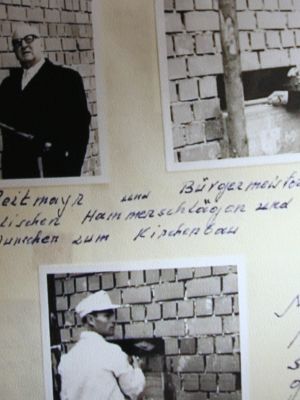 Reitmayr und Bürgermeister
lichen Hammerschlägen und
Wünschen zum Kirchenbau